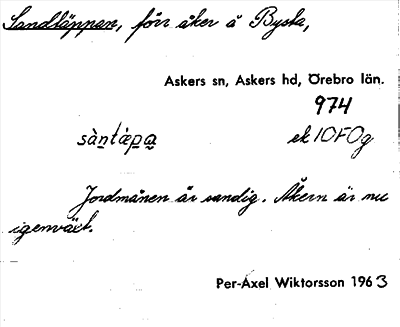 Sandtäppan, förr åker å Bysta,
Askers sn, Askers hd, Örebro län.
974
sàntápa ek 10F0g
Jordmånen är sandig. Åkern är nu
igenväxt.
Per-Axel Wiktorsson 1963